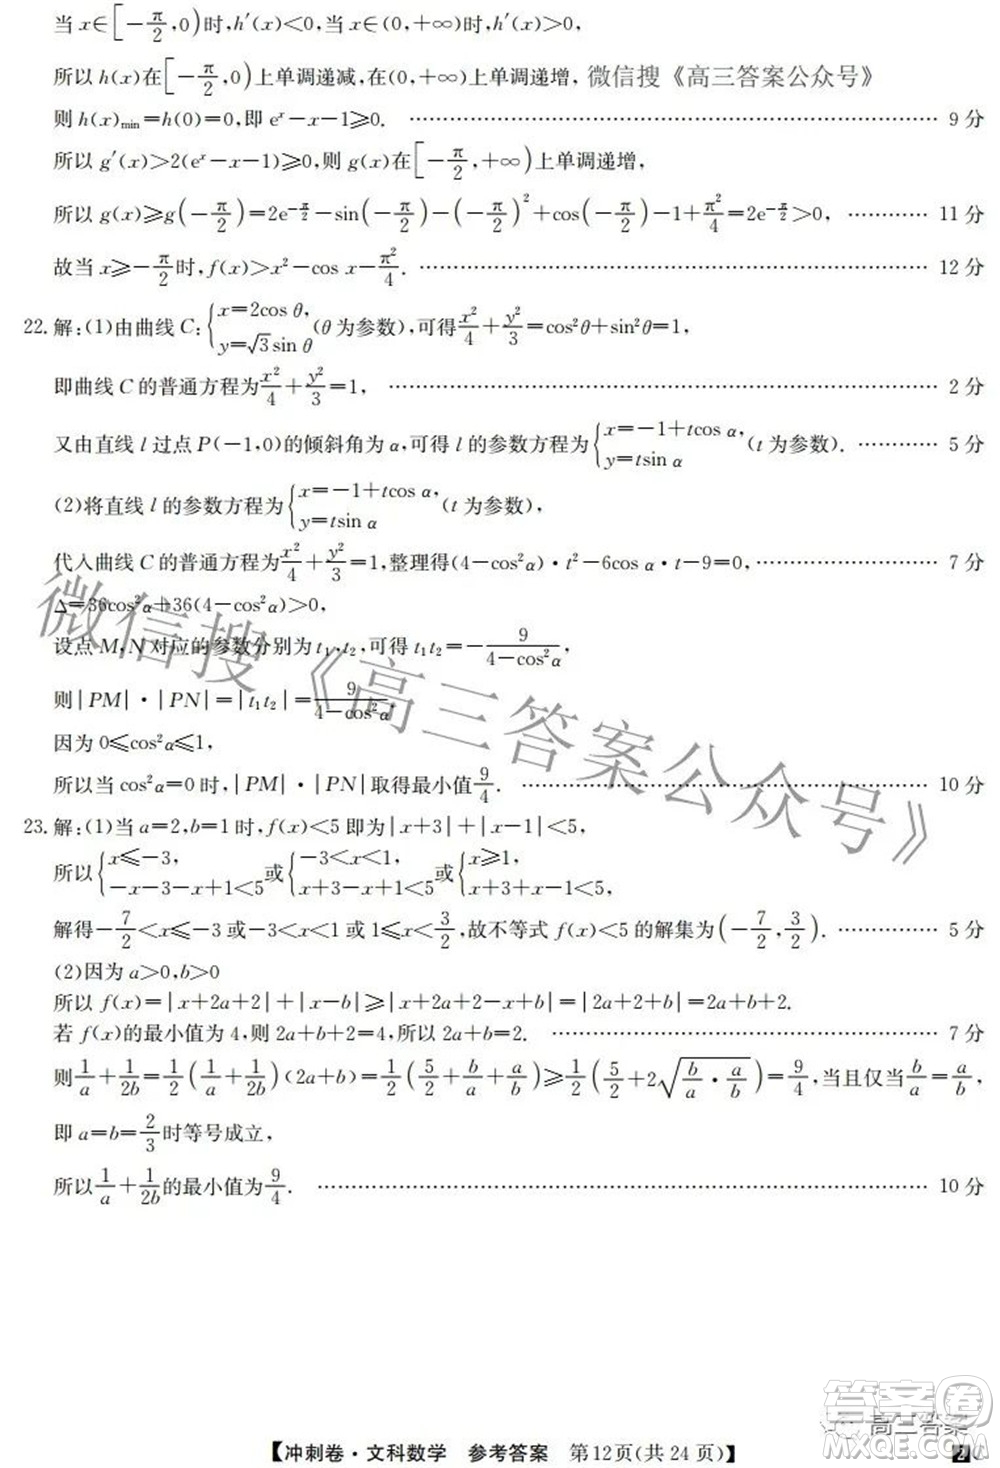 当 x∈[-π/2,0)时,h′(x)<0,当 x∈(0,+∞)时,h′(x)>0,
所以 h(x)在[-π/2,0)上单调递减,在(0,+∞)上单调递增, 微信搜《高三答案公众号》
则 h(x)min=h(0)=0,即 eˣ-x-1≥0. ………… 9 分
所以 g′(x)>2(eˣ-x-1)≥0,则 g(x)在[-π/2,+∞)上单调递增,
所以 g(x)≥g(-π/2)=2e^(-π/2)-sin(-π/2)-(-π/2)²+cos(-π/2)-1+π²/4=2e^(-π/2)>0, ………… 11 分
故当 x≥-π/2时,f(x)>x²-cos x-π²/4. ………… 12 分
22. 解:(1)由曲线 C:{x=2cos θ, y=√3sin θ (θ 为参数),可得x²/4+y²/3=cos²θ+sin²θ=1,
即曲线 C 的普通方程为x²/4+y²/3=1, ………… 2 分
又由直线 l 过点 P(-1,0)的倾斜角为 α,可得 l 的参数方程为{x=-1+tcos α, y=tsin α (t 为参数). ………… 5 分
(2)将直线 l 的参数方程为{x=-1+tcos α, y=tsin α (t 为参数),
代入曲线 C 的普通方程为x²/4+y²/3=1,整理得(4-cos²α)·t²-6cos α·t-9=0, ………… 7 分
Δ=36cos²α+36(4-cos²α)>0,
设点 M,N 对应的参数分别为 t₁,t₂,可得 t₁t₂=-9/(4-cos²α),
则|PM|·|PN|=|t₁t₂|=9/(4-cos²α),
因为 0≤cos²α≤1,
所以当 cos²α=0 时,|PM|·|PN|取得最小值9/4. ………… 10 分
23. 解:(1)当 a=2,b=1 时,f(x)<5 即为|x+3|+|x-1|<5,
所以{x≤-3, -x-3-x+1<5 或{-3<x<1, x+3-x+1<5 或{x≥1, x+3+x-1<5,
解得-7/2<x≤-3 或-3<x<1 或 1≤x<3/2,故不等式 f(x)<5 的解集为(-7/2,3/2). ………… 5 分
(2)因为 a>0,b>0
所以 f(x)=|x+2a+2|+|x-b|≥|x+2a+2-x+b|=|2a+2+b|=2a+b+2.
若 f(x)的最小值为 4,则 2a+b+2=4,所以 2a+b=2. ………… 7 分
则1/a+1/2b=1/2(1/a+1/2b)(2a+b)=1/2(5/2+b/a+a/b)≥1/2(5/2+2√(b/a·a/b))=9/4,当且仅当b/a=a/b,
即 a=b=2/3时等号成立,
所以1/a+1/2b的最小值为9/4. ………… 10 分
微信搜《高三答案公众号》
答案卷
高三答案
【冲刺卷·文科数学 参考答案 第12页(共 24 页)】